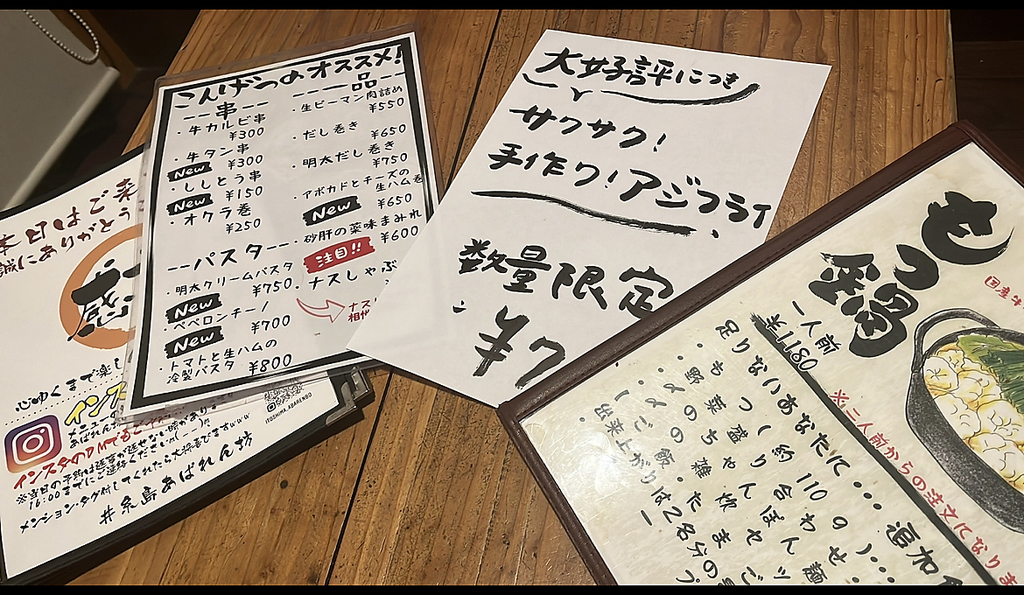 こんげつのオススメ!
--串--
・牛カルビ串
¥300
・牛タン串
New ¥300
・ししとう串
New ¥150
・オクラ巻
¥250
--パスタ--
・明太クリームパスタ
New ¥750
・ペペロンチーノ
New ¥700
・トマトと生ハムの
冷製パスタ ¥800
--一品--
・生ピーマン肉詰め
¥550
・だし巻き ¥650
・明太だし巻き
¥750
・アボカドとチーズの
生ハム巻
New ¥650
・砂肝の薬味まみれ
注目!! ¥600
・ナスしゃぶ
大好評につき
サクサク!
手作り!アジフライ
数量限定
¥7
もつ鍋
国産牛
一人前
¥1,180
※二人前からの注文になりま
足りないあなたに…追加
・もつ
・野菜盛り
・〆のちゃんぽん麺
・〆の雑炊セ
ご飯・たまご
出来上がりは2名分の
本日はご来
誠にありがとう
感
心ゆくまで楽し
インスタのDMでも
16:00までにご連絡ください
メンション・タグ付してくれたら大将喜びますwww
#糸島あばれん坊
ITOSHIMA_ABARENBO